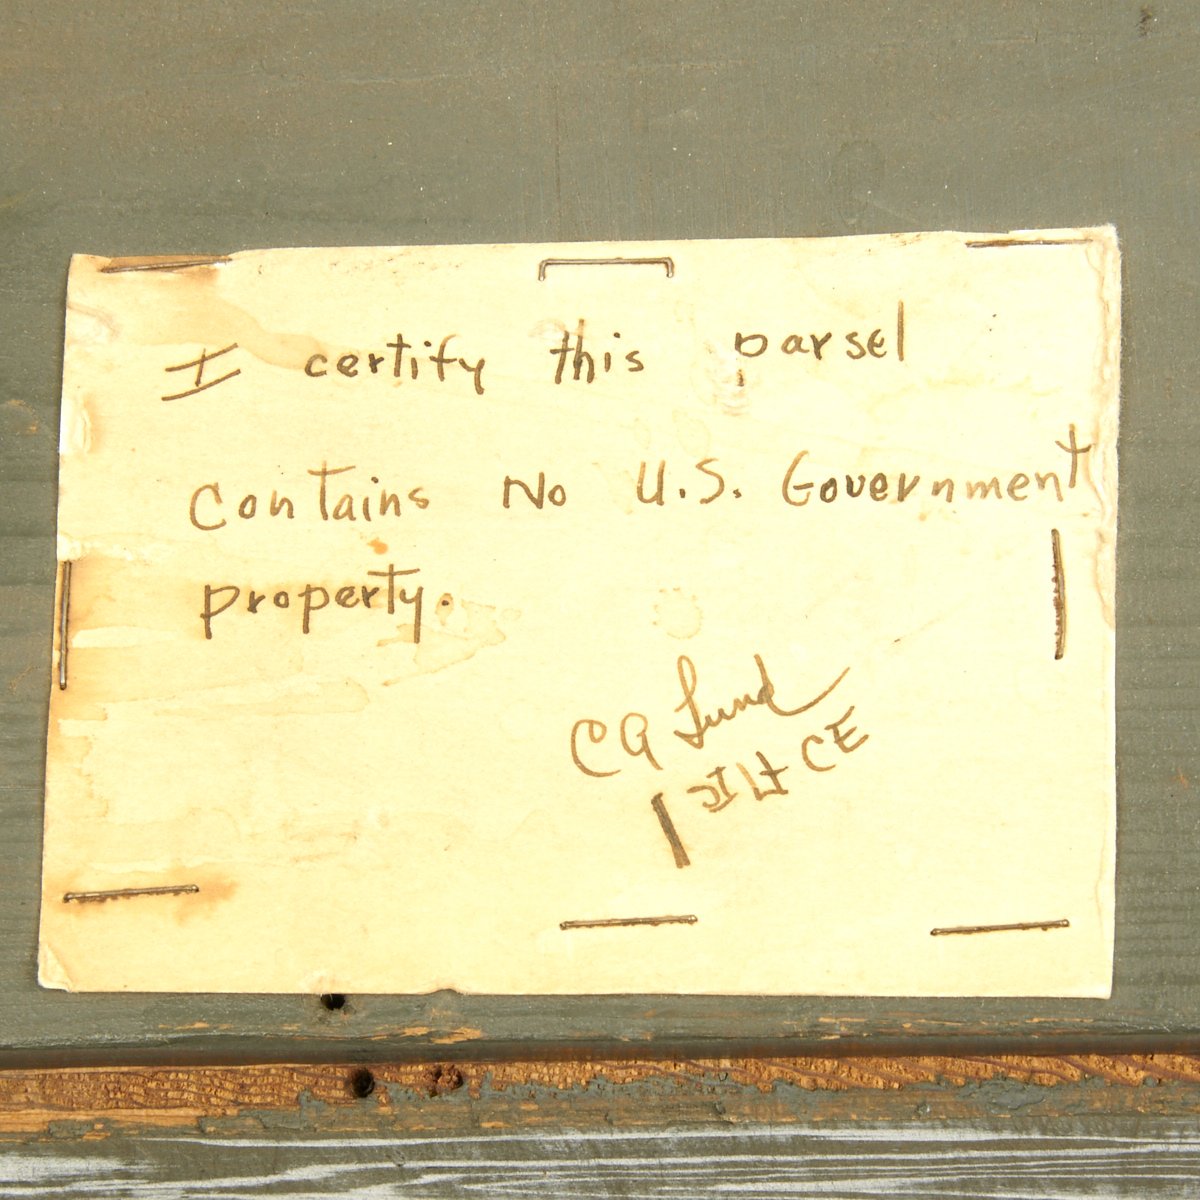 I certify this parsel
Contains No U.S. Government
property.
CG Lund
1st Lt CE